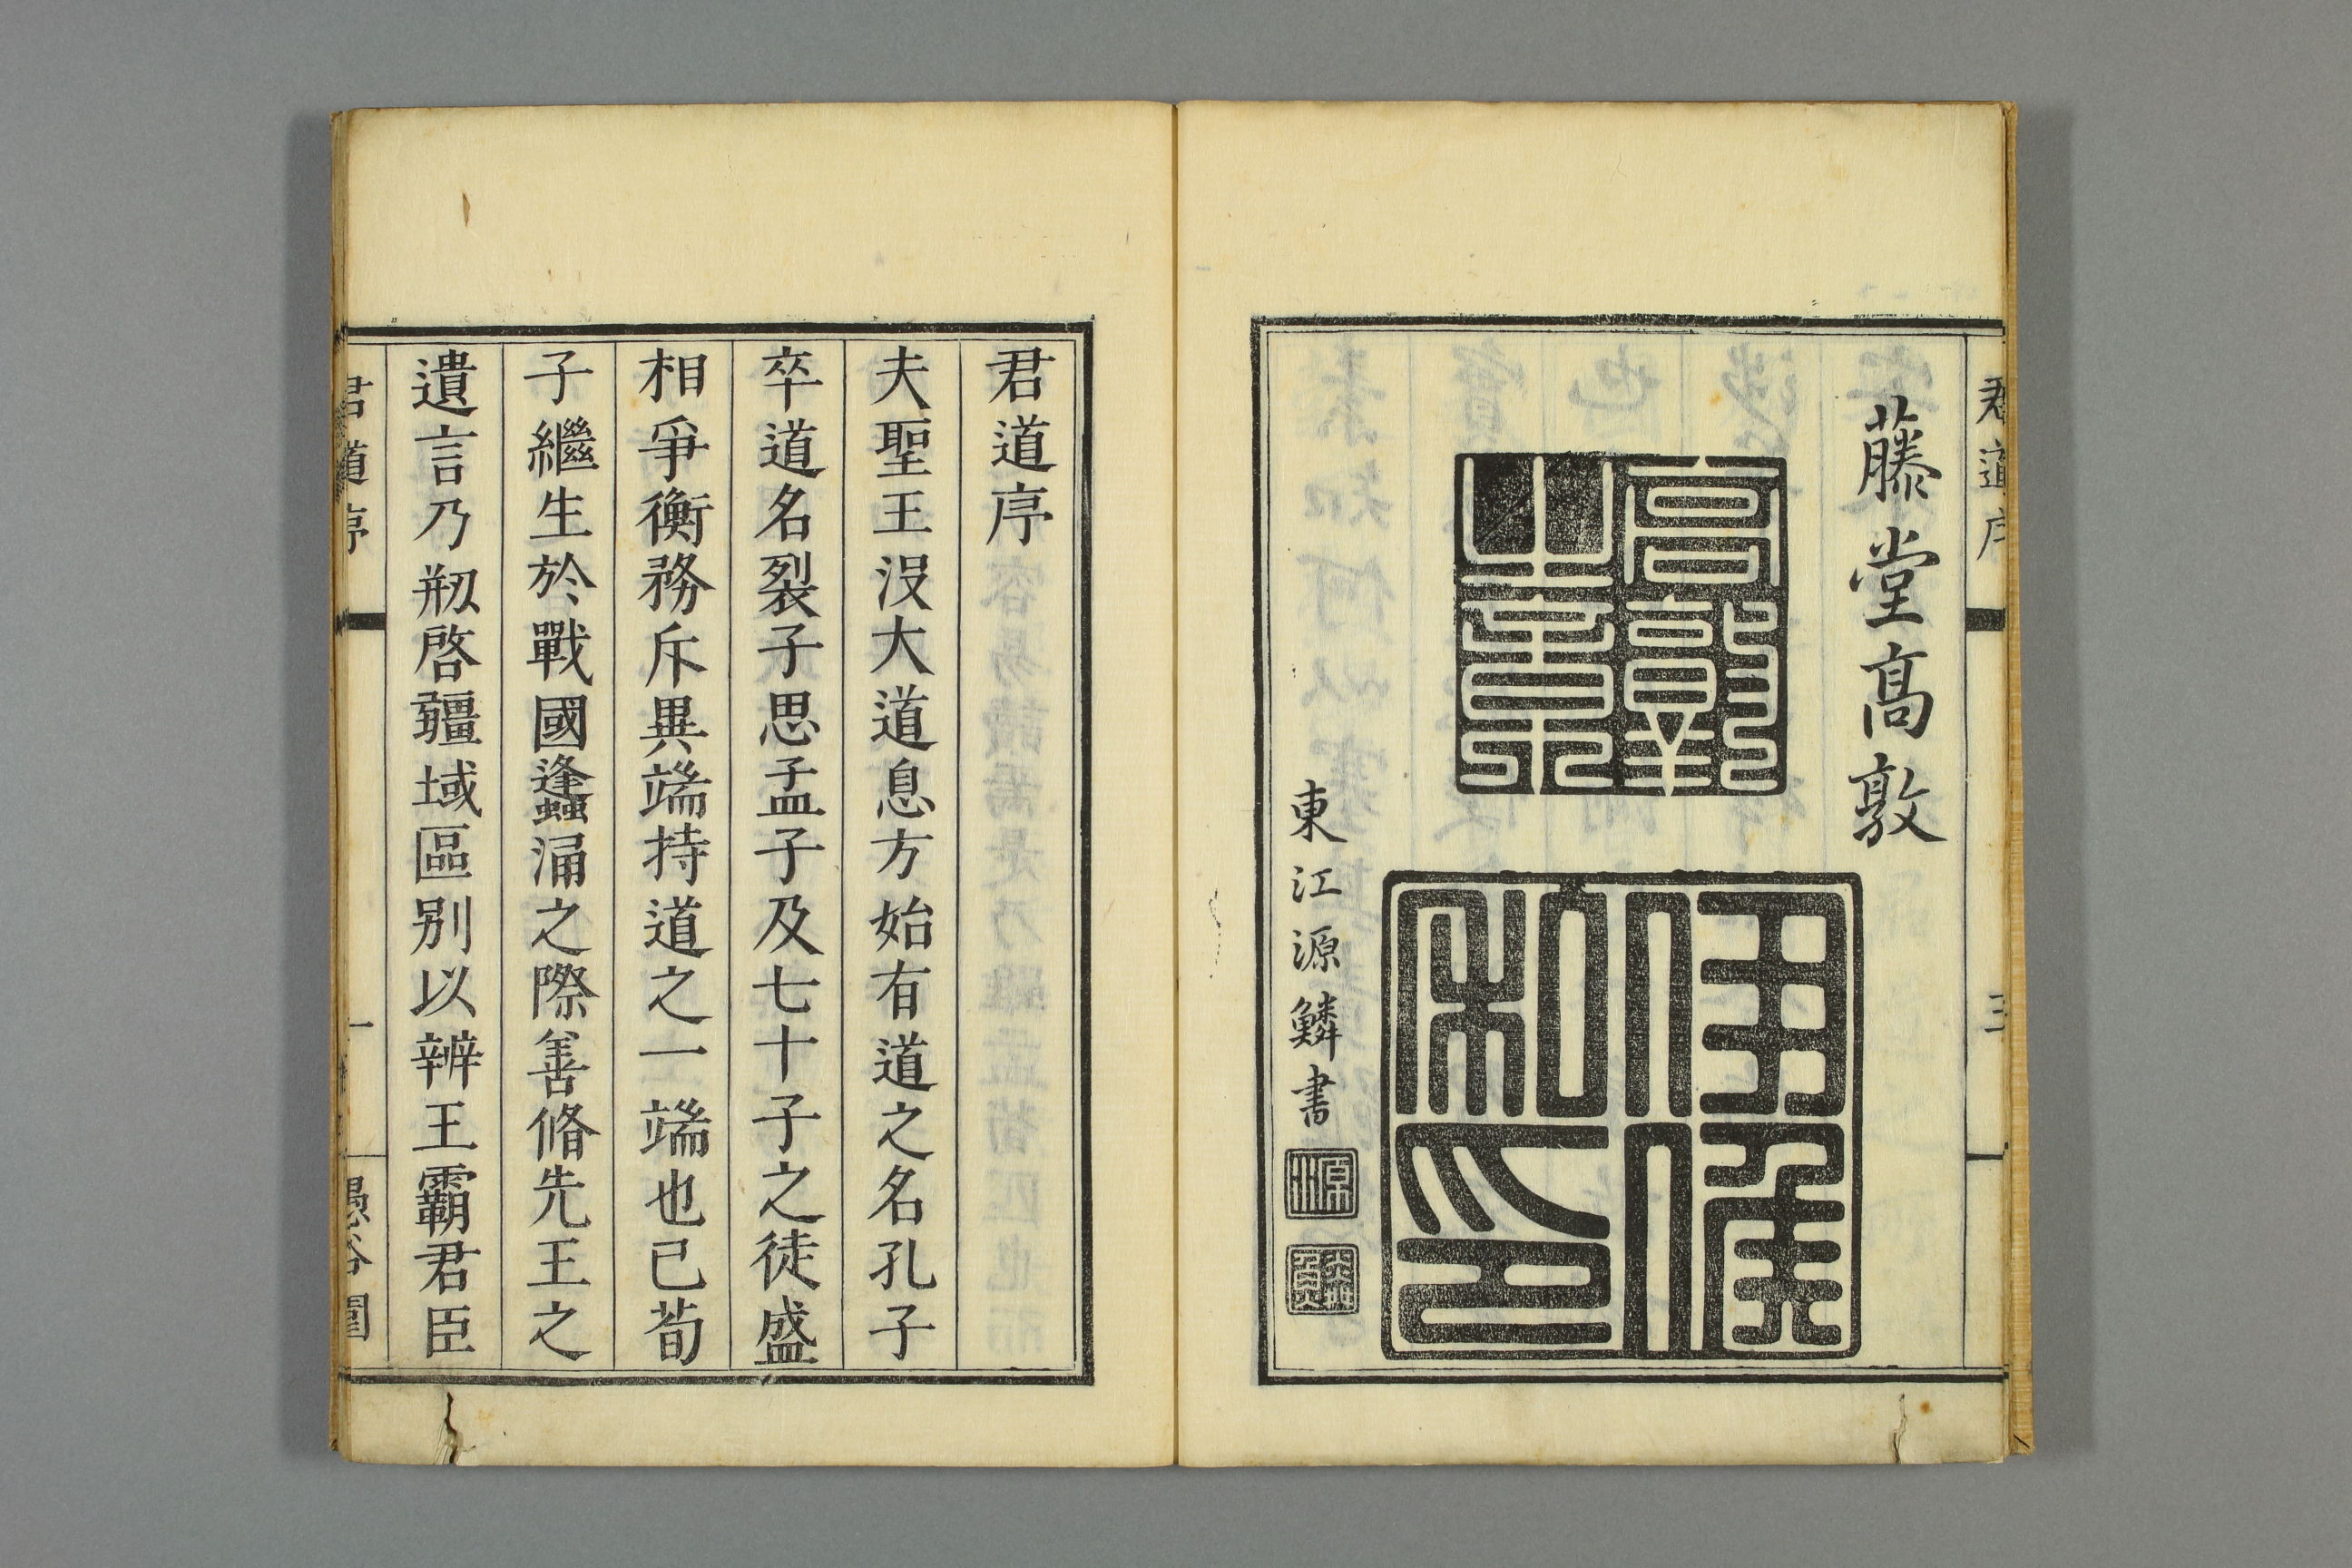 君道序
三
藤堂高敦
高敦
伊隹
和印
東江源鱗書
君道序
夫聖王沒大道息方始有道之名孔子
卒道名裂子思孟子及七十子之徒盛
相爭衡務斥異端持道之一端也已荀
子繼生於戰國蠭涌之際善脩先王之
遺言乃剏啓疆域區別以辨王霸君臣
君道序
一